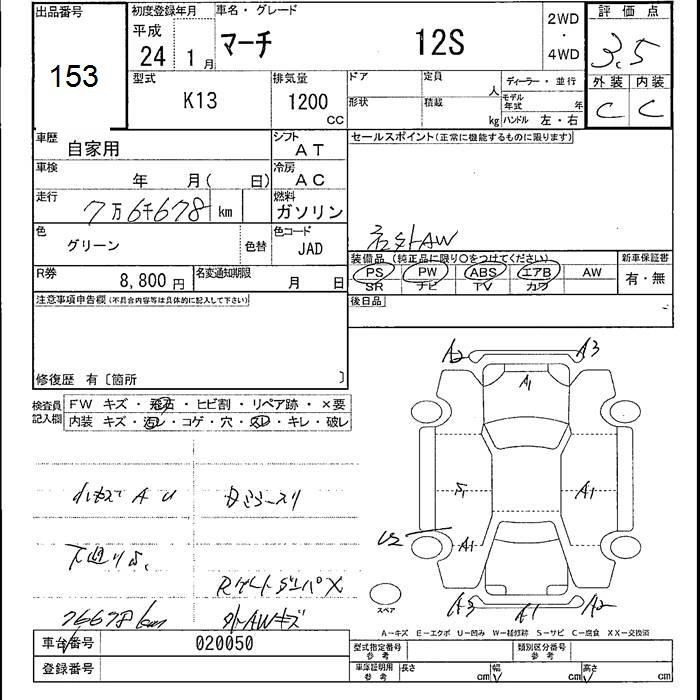 出品番号
153
初度登録年月
平成
24 1月
車名・グレード
マーチ 12S
2WD
・
4WD
評価点
3.5
型式
K13
排気量
1200
CC
ドア
形状
定員
人
積載
kg
ディーラー・並行
モデル
年式 年
ハンドル 左・右
外装 内装
C C
車歴
自家用
シフト
AT
車検
年 月( 日)
冷房
AC
走行
7万6千678 km
燃料
ガソリン
色
グリーン
色替
色コード
JAD
R券
8,800 円
名変通知期限
月 日
セールスポイント(正常に機能するものに限ります)
社外AW
装備品(純正品に限り○をつけてください)
PS PW ABS エアB AW
SR ナビ TV カワ
新車保証書
有・無
後日品
注意事項申告欄(不具合内容等は具体的に記入して下さい)
修復歴 有〔箇所 〕
検査員
記入欄
FW キズ・飛石・ヒビ割・リペア跡・×要
内装 キズ・汚レ・コゲ・穴・スレ・キレ・破レ
小キズ A U
下廻りS,
76678km
Rゲートダンパ×
外AWキズ
A2 A3
A1
S1 A1
U2
A1
A3 A1 A2
スペア
A－キズ E－エクボ U－凹み W－補修跡 S－サビ C－腐食 XX－交換済
車台番号
020050
登録番号
型式指定番号
参考
類別区分番号
参考
車庫証明用
参考
長さ cm 幅 cm 高さ cm